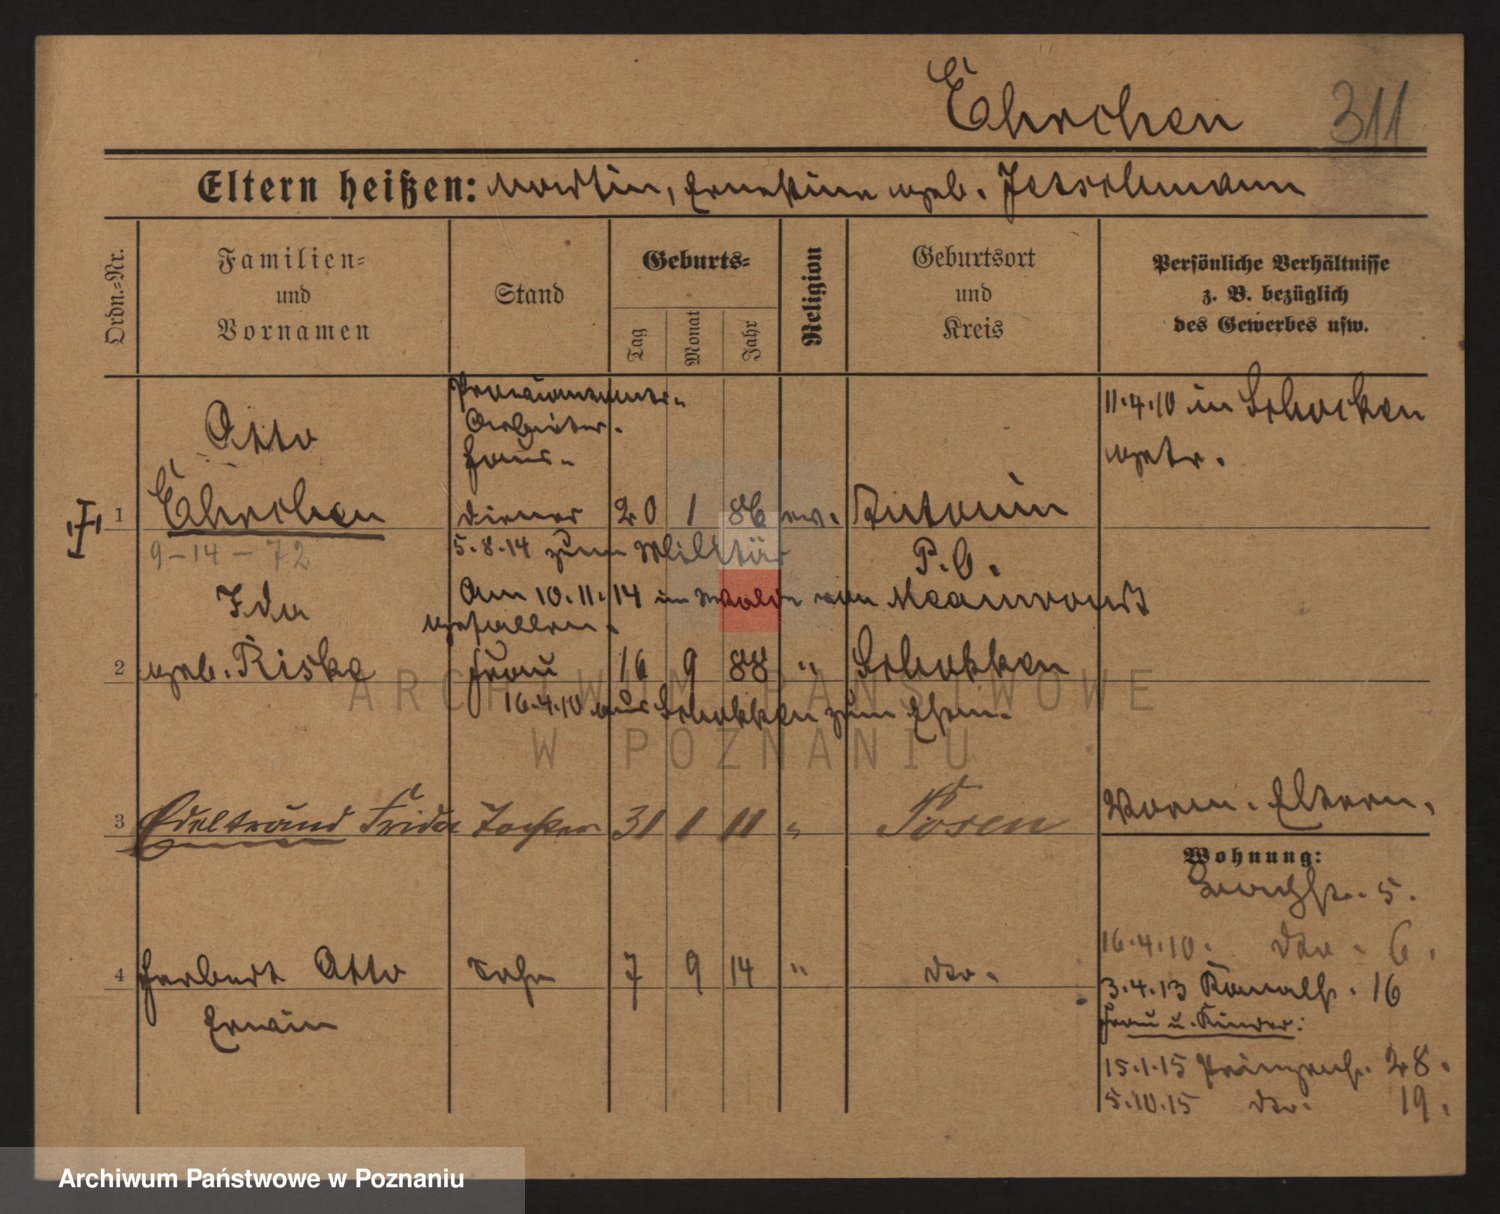 Ehrchen 311
Eltern heißen: Martin, Ernestine geb. Jetschmann
Ordn.-Nr.
Familien-
und
Vornamen
Stand
Geburts-
Tag
Monat
Jahr
Religion
Geburtsort
und
Kreis
Persönliche Verhältnisse
z. B. bezüglich
des Gewerbes usw.
Otto
Proviantamts-
Arbeiter.
Haus-
11.4.10 in Schocken
getr.
1 Ehrchen diener 20 1 86 ev.
9-14-72
5.8.14 zum Militär
P. O.
Ida
Am 10.11.14 im Walde von
gefallen.
2 geb. Riske Frau 16 9 88 " Schokken
16.4.10 aus Schokken zum Ehem.
ARCHIWUM PAŃSTWOWE
W POZNANIU
3 Edeltraud Frida Tochter 31 1 11 " Posen
Vorm. Eltern.
Wohnung:
5.
16.4.10. dto. 6.
4 Herbert Otto Sohn 7 9 14 " dto.
Erwin
3.4.13 Kanalstr. 16
Frau u. Kinder:
15.1.15 Prinzenstr. 28.
5.10.15 dto. 19.
Archiwum Państwowe w Poznaniu